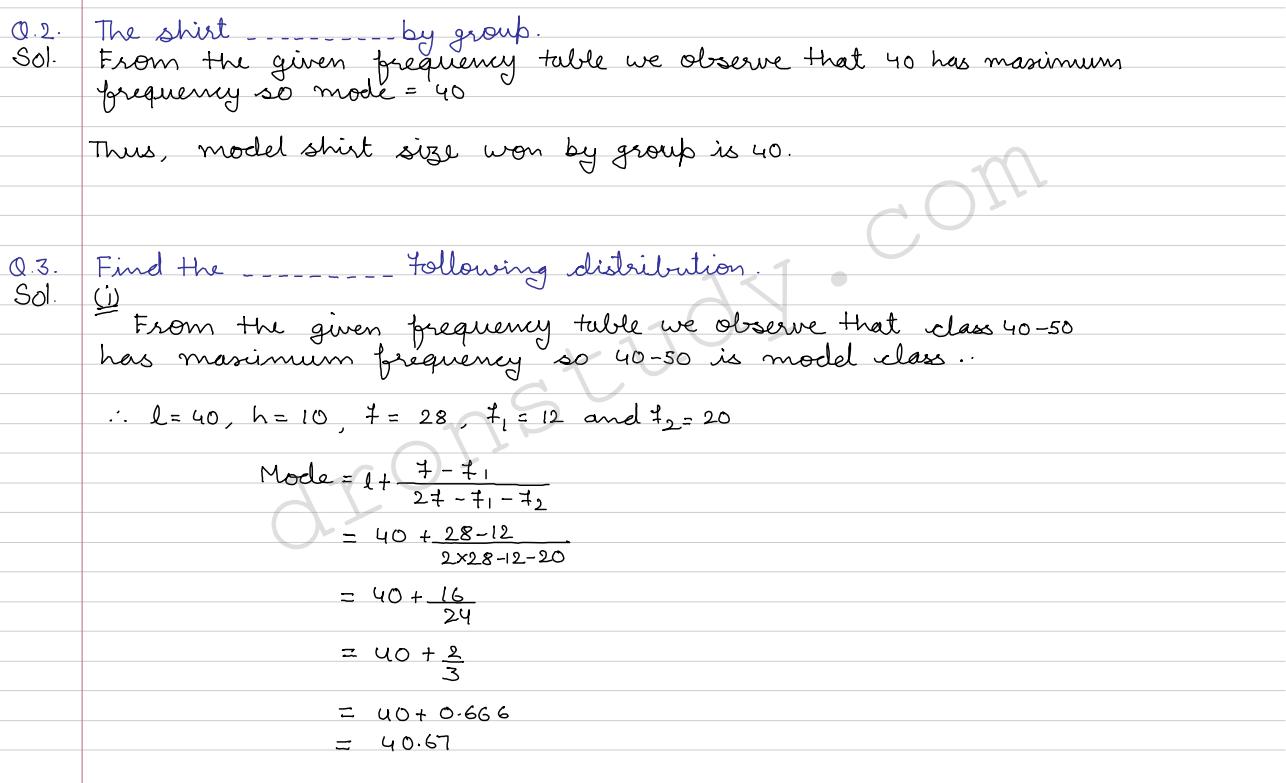 Q.2. The shirt ---------- by group.
Sol. From the given frequency table we observe that 40 has maximum
frequency so mode = 40
Thus, model shirt size won by group is 40.
Q.3. Find the --------- following distribution.
Sol. (i)
From the given frequency table we observe that class 40-50
has maximum frequency so 40-50 is model class..
∴ l = 40, h = 10, f = 28, f₁ = 12 and f₂ = 20
Mode = l + (f - f₁)/(2f - f₁ - f₂)
= 40 + (28-12)/(2×28-12-20)
= 40 + 16/24
= 40 + 2/3
= 40 + 0.666
= 40.67
dronstudy.com